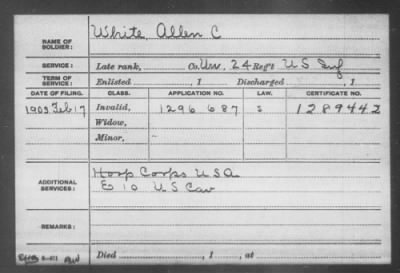 NAME OF SOLDIER: White Allen C
SERVICE: Late rank, Co. Unv, 24 Reg't U S Inf
TERM OF SERVICE: Enlisted , 1 Discharged , 1
DATE OF FILING. CLASS. APPLICATION NO. LAW. CERTIFICATE NO.
1903 Feb 17 Invalid, 1296 687 1289442
Widow,
Minor,
ADDITIONAL SERVICES: Hosp Corps U.S.A.
E 10 U S Cav
REMARKS:
Died , 1 , at